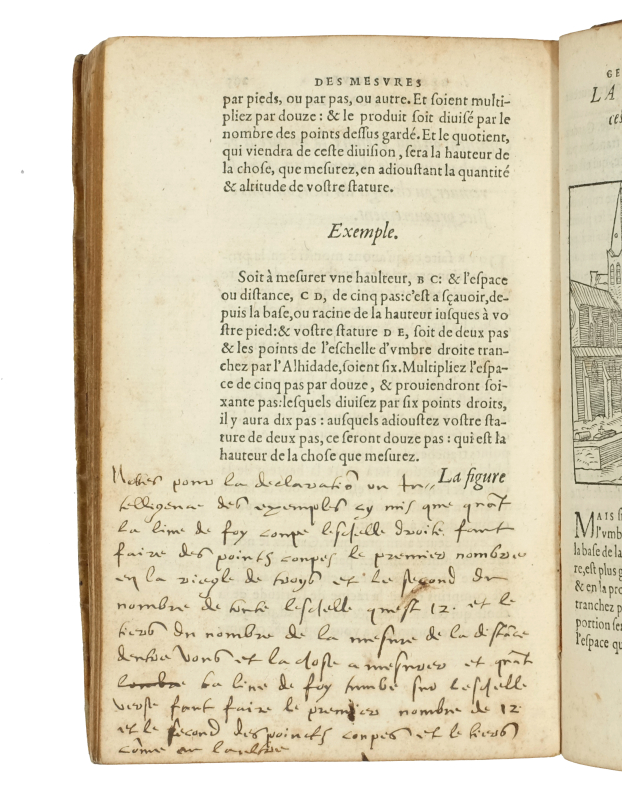 DES MESVRES
par pieds, ou par pas, ou autre. Et soient multi-
pliez par douze : & le produit soit diuisé par le
nombre des points dessus gardé. Et le quotient,
qui viendra de ceste diuision, sera la hauteur de
la chose, que mesurez, en adioustant la quantité
& altitude de vostre stature.
Exemple.
Soit à mesurer vne haulteur, B C: & l'espace
ou distance, C D, de cinq pas: c'est a sçauoir, de-
puis la base, ou racine de la hauteur iusques à vo
stre pied: & vostre stature D E, soit de deux pas
& les points de l'eschelle d'vmbre droite tran-
chez par l'Alhidade, soient six. Multipliez l'espa-
ce de cinq pas par douze, & prouiendront soi-
xante pas: lesquels diuisez par six points droits,
il y aura dix pas : ausquels adioustez vostre sta-
ture de deux pas, ce seront douze pas : qui est la
hauteur de la chose que mesurez.
La figure
Notes pour la declaration ou In
telligence des exemples cy mis que quāt
la line de foy coupe leschelle droite faut
faire des points coupes le premier nombre
en la riegle de troys et le second du
nombre de toute leschelle quest 12. et le
tiers du nombre de la mesure de la distāce
dentre vous et la chose a mesurer et quāt
la line de foy tumbe sur leschelle
verse faut faire le premier nombre de 12
et le second des poincts coupes et le tiers
cōme en laultre
GE
LA
ces
MAIS s
l'vmb
la base de la
re, est plus g
& en la pro
tranchez p
portion ser
l'espace qu